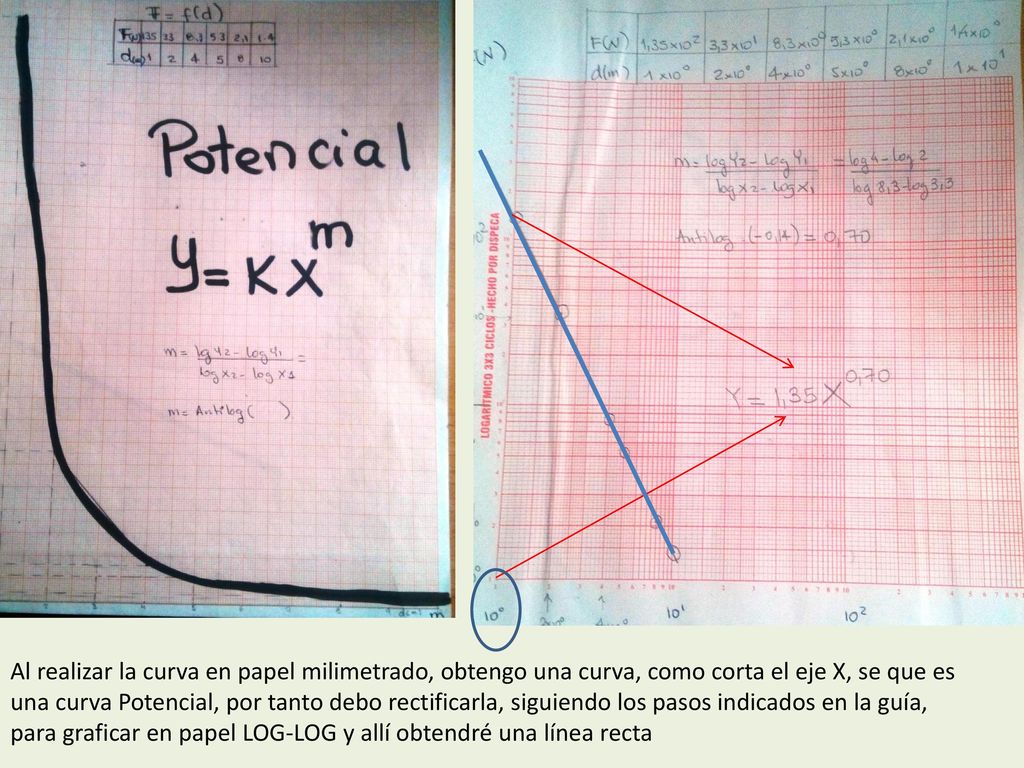 F = f(d)
F(N) 135 33 8,3 5 3 2,1 1.4
d(m) 1 2 4 5 8 10
Potencial
y = K X^m
m = log Y2 - log Y1 =
log X2 - log X1
m = Antilog ( )
m
(N)
F(N) 1,35x10² 3,3x10¹ 8,3x10⁰ 5,3x10⁰ 2,1x10⁰ 1,4x10⁰
d(m) 1x10⁰ 2x10⁰ 4x10⁰ 5x10⁰ 8x10⁰ 1x10¹
m = log Y2 - log Y1 = log 4 - log 2
log X2 - log X1 log 8,3 - log 3,3
Antilog (-0,14) = 0,70
LOGARITMICO 3X3 CICLOS -HECHO POR DISPECA
Y = 1,35 X^0,70
10⁰ 10¹ 10²
Al realizar la curva en papel milimetrado, obtengo una curva, como corta el eje X, se que es
una curva Potencial, por tanto debo rectificarla, siguiendo los pasos indicados en la guía,
para graficar en papel LOG-LOG y allí obtendré una línea recta